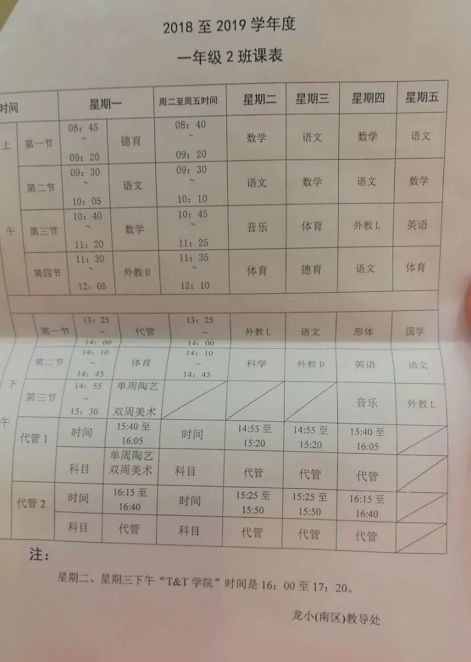 2018 至 2019 学年度
一年级 2 班课表
时间 星期一 周二至周五时间 星期二 星期三 星期四 星期五
上午 第一节 08：45 ~ 09：20 德育 08：40 ~ 09：20 数学 语文 数学 语文
第二节 09：30 ~ 10：05 语文 09：30 ~ 10：10 语文 数学 语文 数学
第三节 10：40 ~ 11：20 数学 10：45 ~ 11：25 音乐 体育 外教 L 英语
第四节 11：30 ~ 12：05 外教 D 11：35 ~ 12：10 体育 德育 语文 体育
下午 第一节 13：25 ~ 14：00 代管 13：25 ~ 14：00 外教 L 语文 形体 国学
第二节 14：10 ~ 14：45 体育 14：10 ~ 14：45 科学 外教 D 英语 语文
第三节 14：55 ~ 15：30 单周陶艺 双周美术 音乐 外教 L
代管 1 时间 15:40 至 16:05 时间 14:55 至 15:20 14:55 至 15:20 15:40 至 16:05
科目 单周陶艺 双周美术 科目 代管 代管 代管
代管 2 时间 16:15 至 16:40 时间 15:25 至 15:50 15:25 至 15:50 16:15 至 16:40
科目 代管 科目 代管 代管 代管
注：
星期二、星期三下午“T&T 学院”时间是 16：00 至 17：20。
龙小(南区)教导处